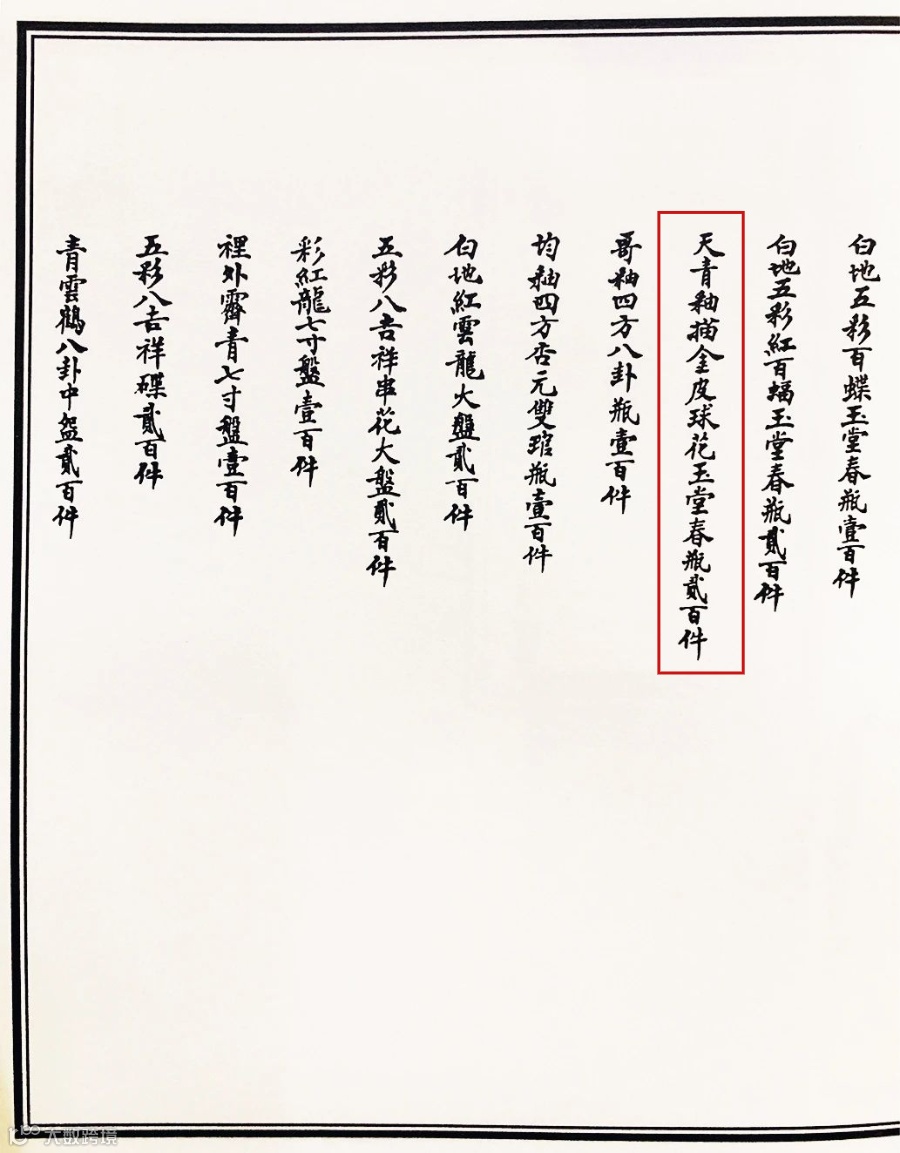 白地五彩百蝶玉堂春瓶壹百件
白地五彩紅百蝠玉堂春瓶貳百件
天青釉描金皮球花玉堂春瓶貳百件
哥釉四方八卦瓶壹百件
均釉四方杏元雙琯瓶壹百件
白地紅雲龍大盤貳百件
五彩八吉祥串花大盤貳百件
彩紅龍七寸盤壹百件
裡外霽青七寸盤壹百件
五彩八吉祥碟貳百件
青雲鶴八卦中盌貳百件
大数跨境